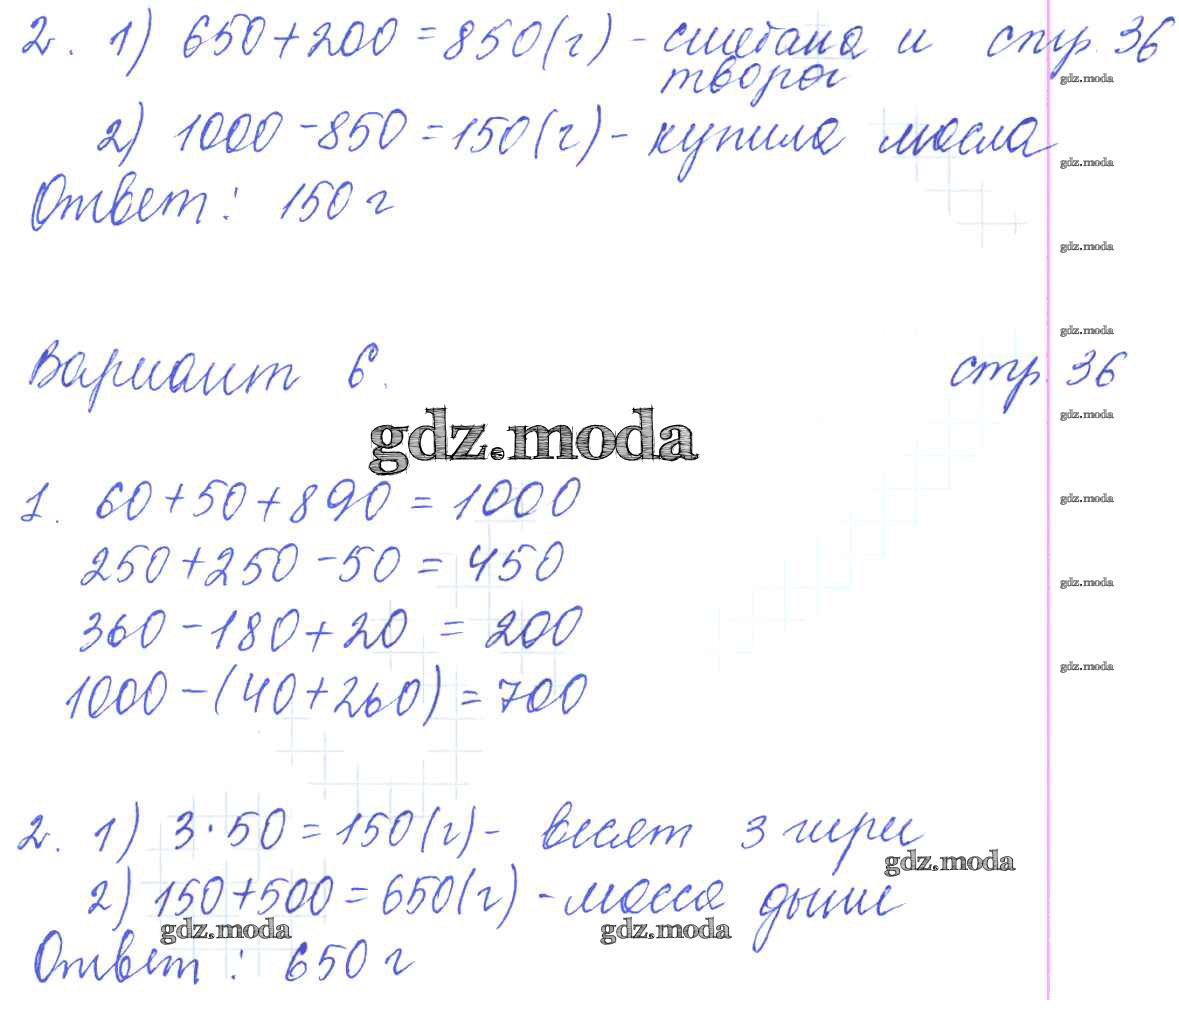 2. 1) 650+200=850(г) - сметана и стр. 36
творог
gdz.moda
2) 1000-850=150(г) - купила масла
gdz.moda
Ответ: 150 г
gdz.moda
gdz.moda
Вариант 6. стр. 36
gdz.moda
gdz.moda
1. 60+50+890=1000
gdz.moda
250+250-50=450
gdz.moda
360-180+20=200
1000-(40+260)=700
gdz.moda
2. 1) 3·50=150(г) - весят 3 гири
gdz.moda
2) 150+500=650(г) - масса дыни
gdz.moda gdz.moda
Ответ: 650 г